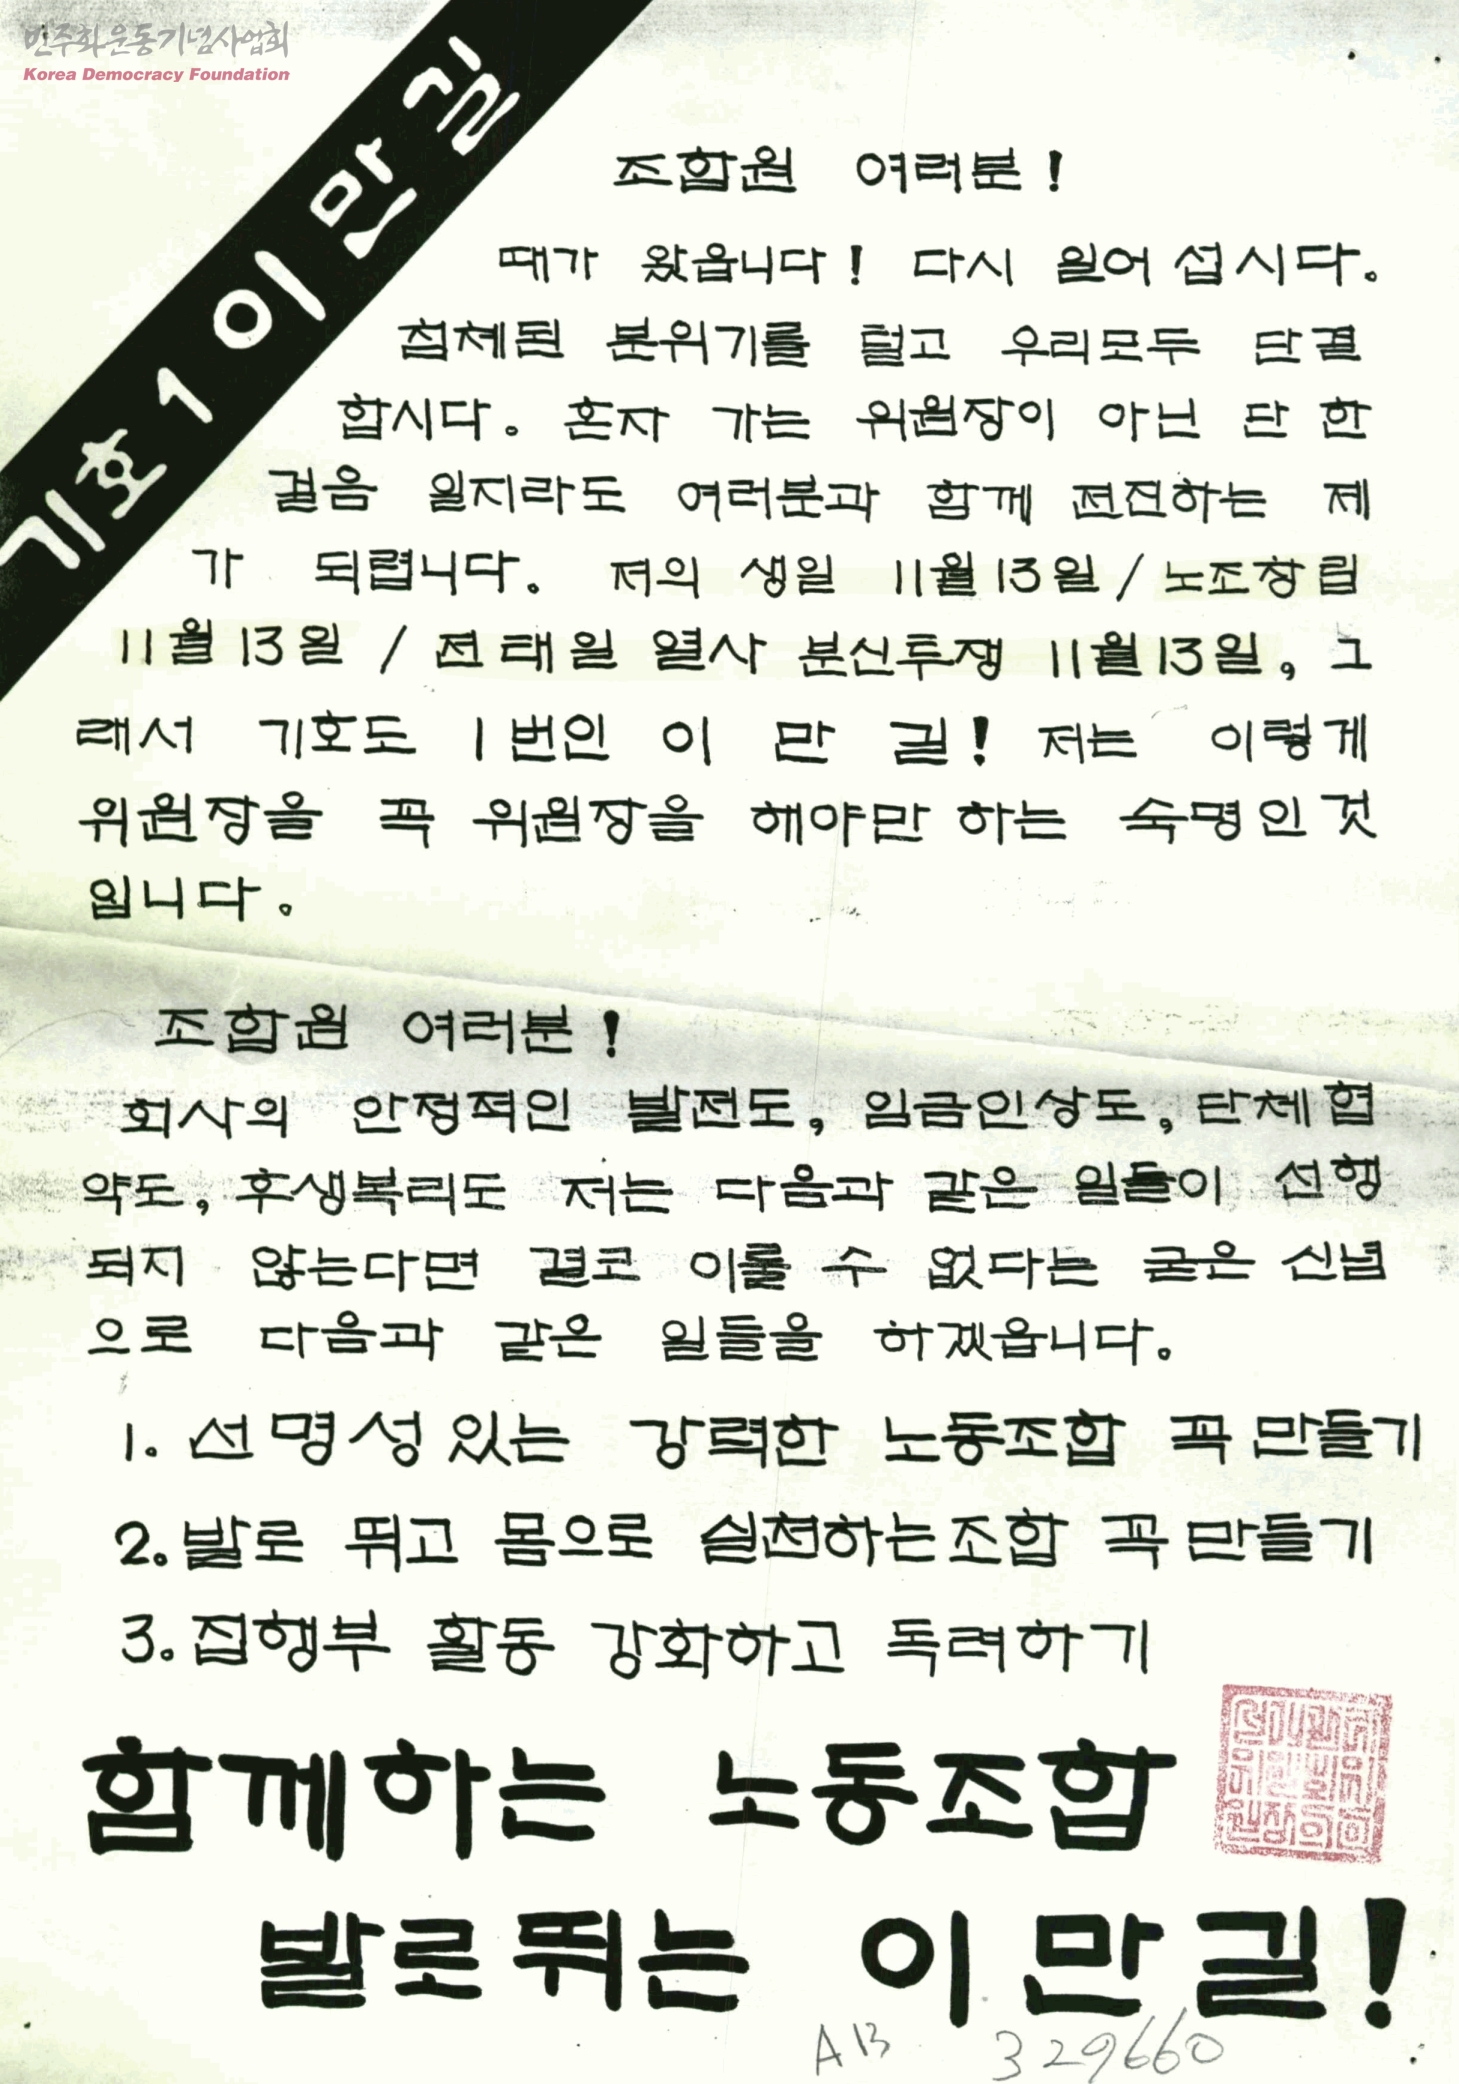 민주화운동기념사업회
Korea Democracy Foundation
기호 1 이만길
조합원 여러분!
때가 왔읍니다! 다시 일어섭시다.
침체된 분위기를 털고 우리모두 단결
합시다. 혼자 가는 위원장이 아닌 단 한
걸음 일지라도 여러분과 함께 전진하는 제
가 되렵니다. 저의 생일 11월13일/노조창립
11월13일 / 전태일 열사 분신투쟁 11월13일, 그
래서 기호도 1번인 이 만 길! 저는 이렇게
위원장을 꼭 위원장을 해야만 하는 숙명인것
입니다.
조합원 여러분!
회사의 안정적인 발전도, 임금인상도, 단체협
약도, 후생복리도 저는 다음과 같은 일들이 선행
되지 않는다면 결코 이룰 수 없다는 굳은 신념
으로 다음과 같은 일들을 하겠읍니다.
1. 선명성있는 강력한 노동조합 꼭 만들기
2. 발로 뛰고 몸으로 실천하는조합 꼭 만들기
3. 집행부 활동 강화하고 독려하기
함께하는 노동조합
발로뛰는 이만길!
AB 329660